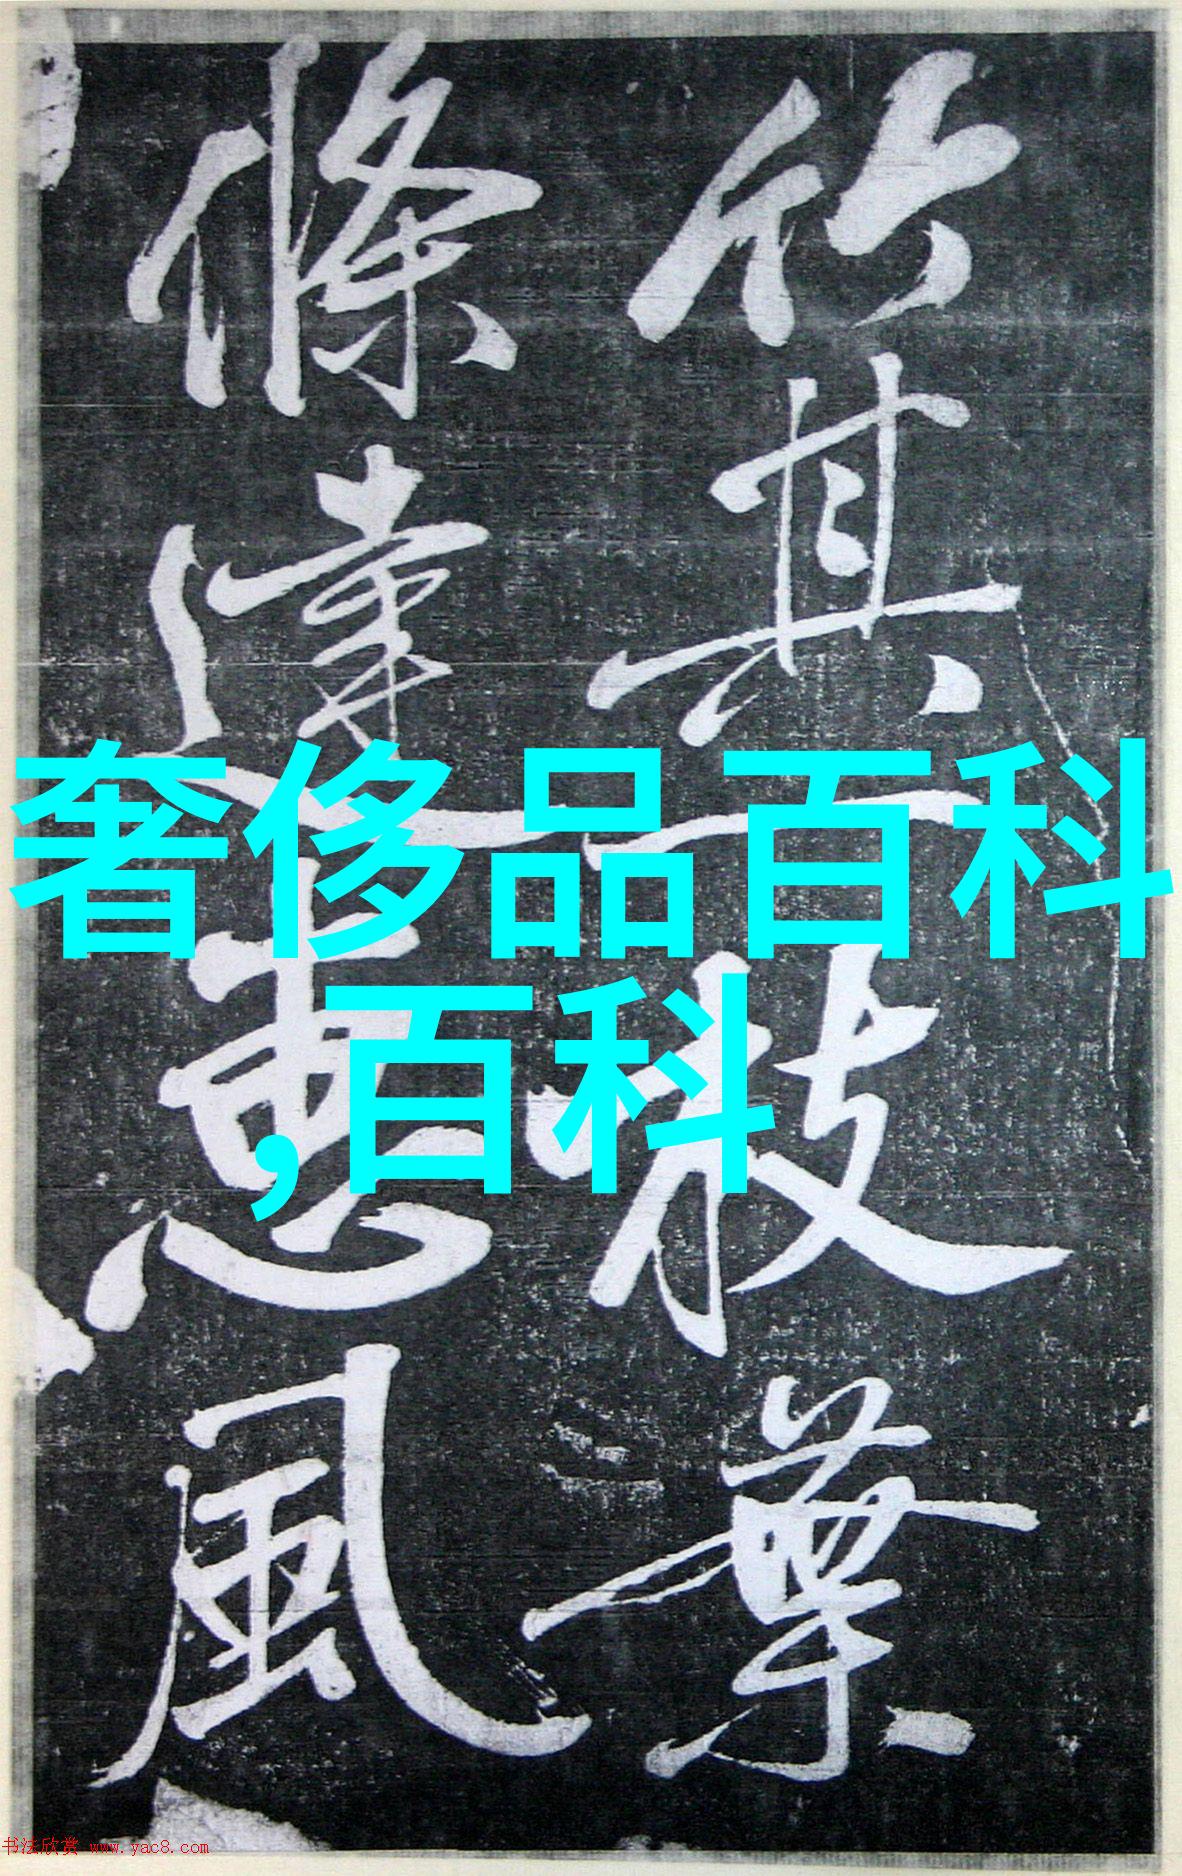 竹其枝葉
條達惠風
奢侈品百科
,百科
书法欣赏 www.yac8.com